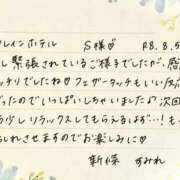 レインホテル S様♡ R8.8.5
し緊張されているご様子でしたが、感
ッチリでしたね♡フェザータッチも反応
だったのでいっぱいしちゃいました♪次回
う少しリラックスしてもらえるっ…!も
られさせますのでお楽しみに♡
新保 すみれ